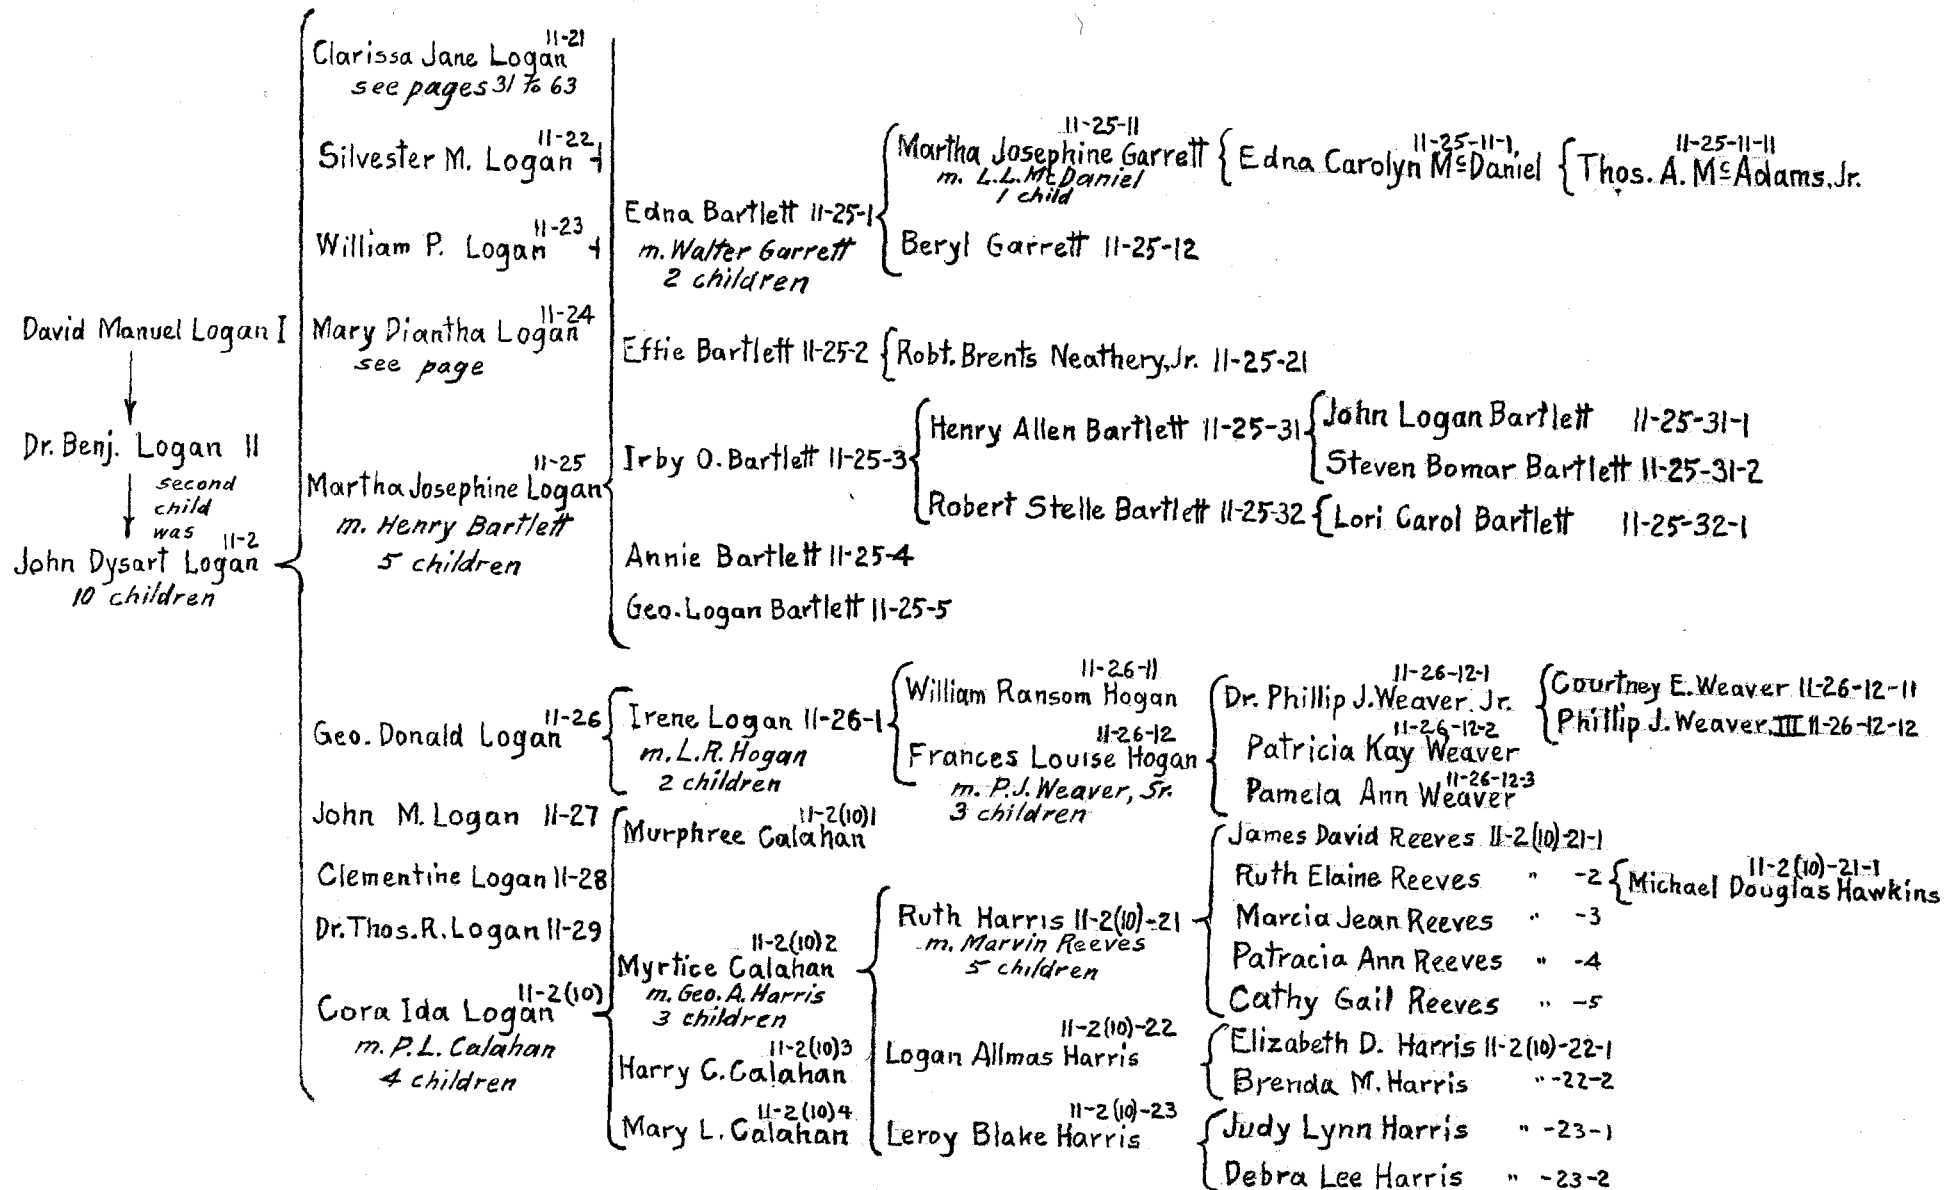 David Manuel Logan I
Dr. Benj. Logan II
second
child
was
11-2
John Dysart Logan
10 children
11-21
Clarissa Jane Logan
see pages 31 to 63
11-22
Silvester M. Logan +
11-23
William P. Logan +
11-24
Mary Diantha Logan
see page
11-25
Martha Josephine Logan
m. Henry Bartlett
5 children
11-26
Geo. Donald Logan
John M. Logan 11-27
Clementine Logan 11-28
Dr. Thos. R. Logan 11-29
11-2(10)
Cora Ida Logan
m. P.L. Calahan
4 children
Edna Bartlett 11-25-1
m. Walter Garrett
2 children
Effie Bartlett 11-25-2
Irby O. Bartlett 11-25-3
Annie Bartlett 11-25-4
Geo. Logan Bartlett 11-25-5
Irene Logan 11-26-1
m. L.R. Hogan
2 children
11-2(10)1
Murphree Calahan
11-2(10)2
Myrtice Calahan
m. Geo. A. Harris
3 children
11-2(10)3
Harry C. Calahan
11-2(10)4
Mary L. Calahan
11-25-11
Martha Josephine Garrett
m. L.L. McDaniel
1 child
Beryl Garrett 11-25-12
Robt. Brents Neathery, Jr. 11-25-21
Henry Allen Bartlett 11-25-31
Robert Stelle Bartlett 11-25-32
11-26-11
William Ransom Hogan
11-26-12
Frances Louise Hogan
m. P.J. Weaver, Sr.
3 children
Ruth Harris 11-2(10)-21
m. Marvin Reeves
5 children
11-2(10)-22
Logan Allmas Harris
11-2(10)-23
Leroy Blake Harris
11-25-11-1
Edna Carolyn McDaniel
John Logan Bartlett 11-25-31-1
Steven Bomar Bartlett 11-25-31-2
Lori Carol Bartlett 11-25-32-1
11-26-12-1
Dr. Phillip J. Weaver. Jr.
11-26-12-2
Patricia Kay Weaver
11-26-12-3
Pamela Ann Weaver
James David Reeves 11-2(10)-21-1
Ruth Elaine Reeves " -2
Marcia Jean Reeves " -3
Patracia Ann Reeves " -4
Cathy Gail Reeves " -5
Elizabeth D. Harris 11-2(10)-22-1
Brenda M. Harris " -22-2
Judy Lynn Harris " -23-1
Debra Lee Harris " -23-2
11-25-11-11
Thos. A. McAdams, Jr.
Courtney E. Weaver 11-26-12-11
Phillip J. Weaver, III 11-26-12-12
11-2(10)-21-1
Michael Douglas Hawkins